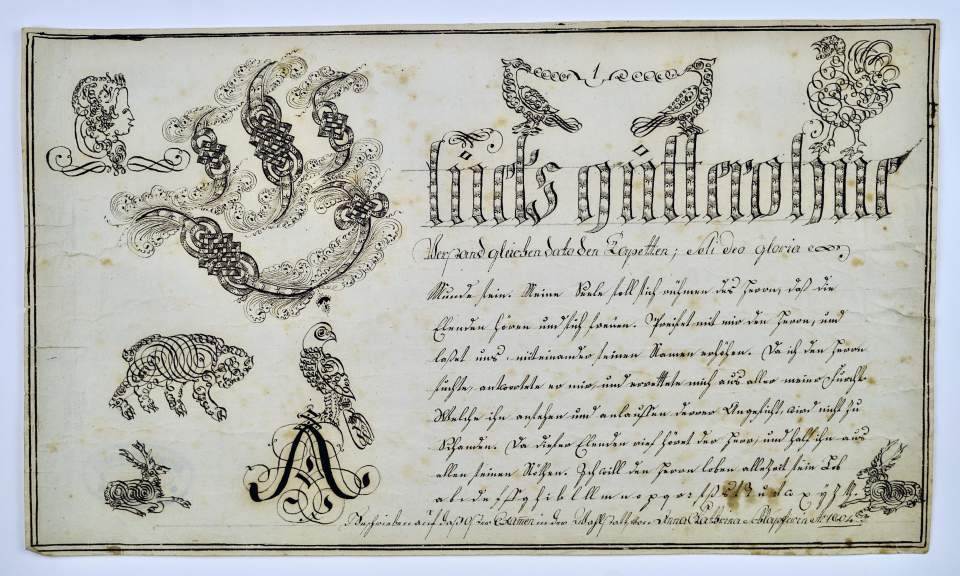 1,
Glücks gütter ohne
Verstand gleichen den Tapetten; Soli Deo Gloria
Munde sein. Meine Seele soll sich rühmen des Herrn, daß die
Elenden hören und sich freuen. Preiset mit mir den Herrn, und
laßet uns miteinander seinen Namen erhöhen. Da ich den Herrn
suchte, antwortete er mir, und errettete mich aus aller meiner Furcht.
Welche ihn ansehen und anlauffen derrer Angesicht, wird nicht zu
Schanden. Da dieser Elenden rief höret der Herr, und half ihn aus
allen seinen Nöthen. Ich will den Herrn loben allezeit sein Lob
A
Geschrieben auf daß Oster Examen in der von Anna Catharina Schläpferin A 1804